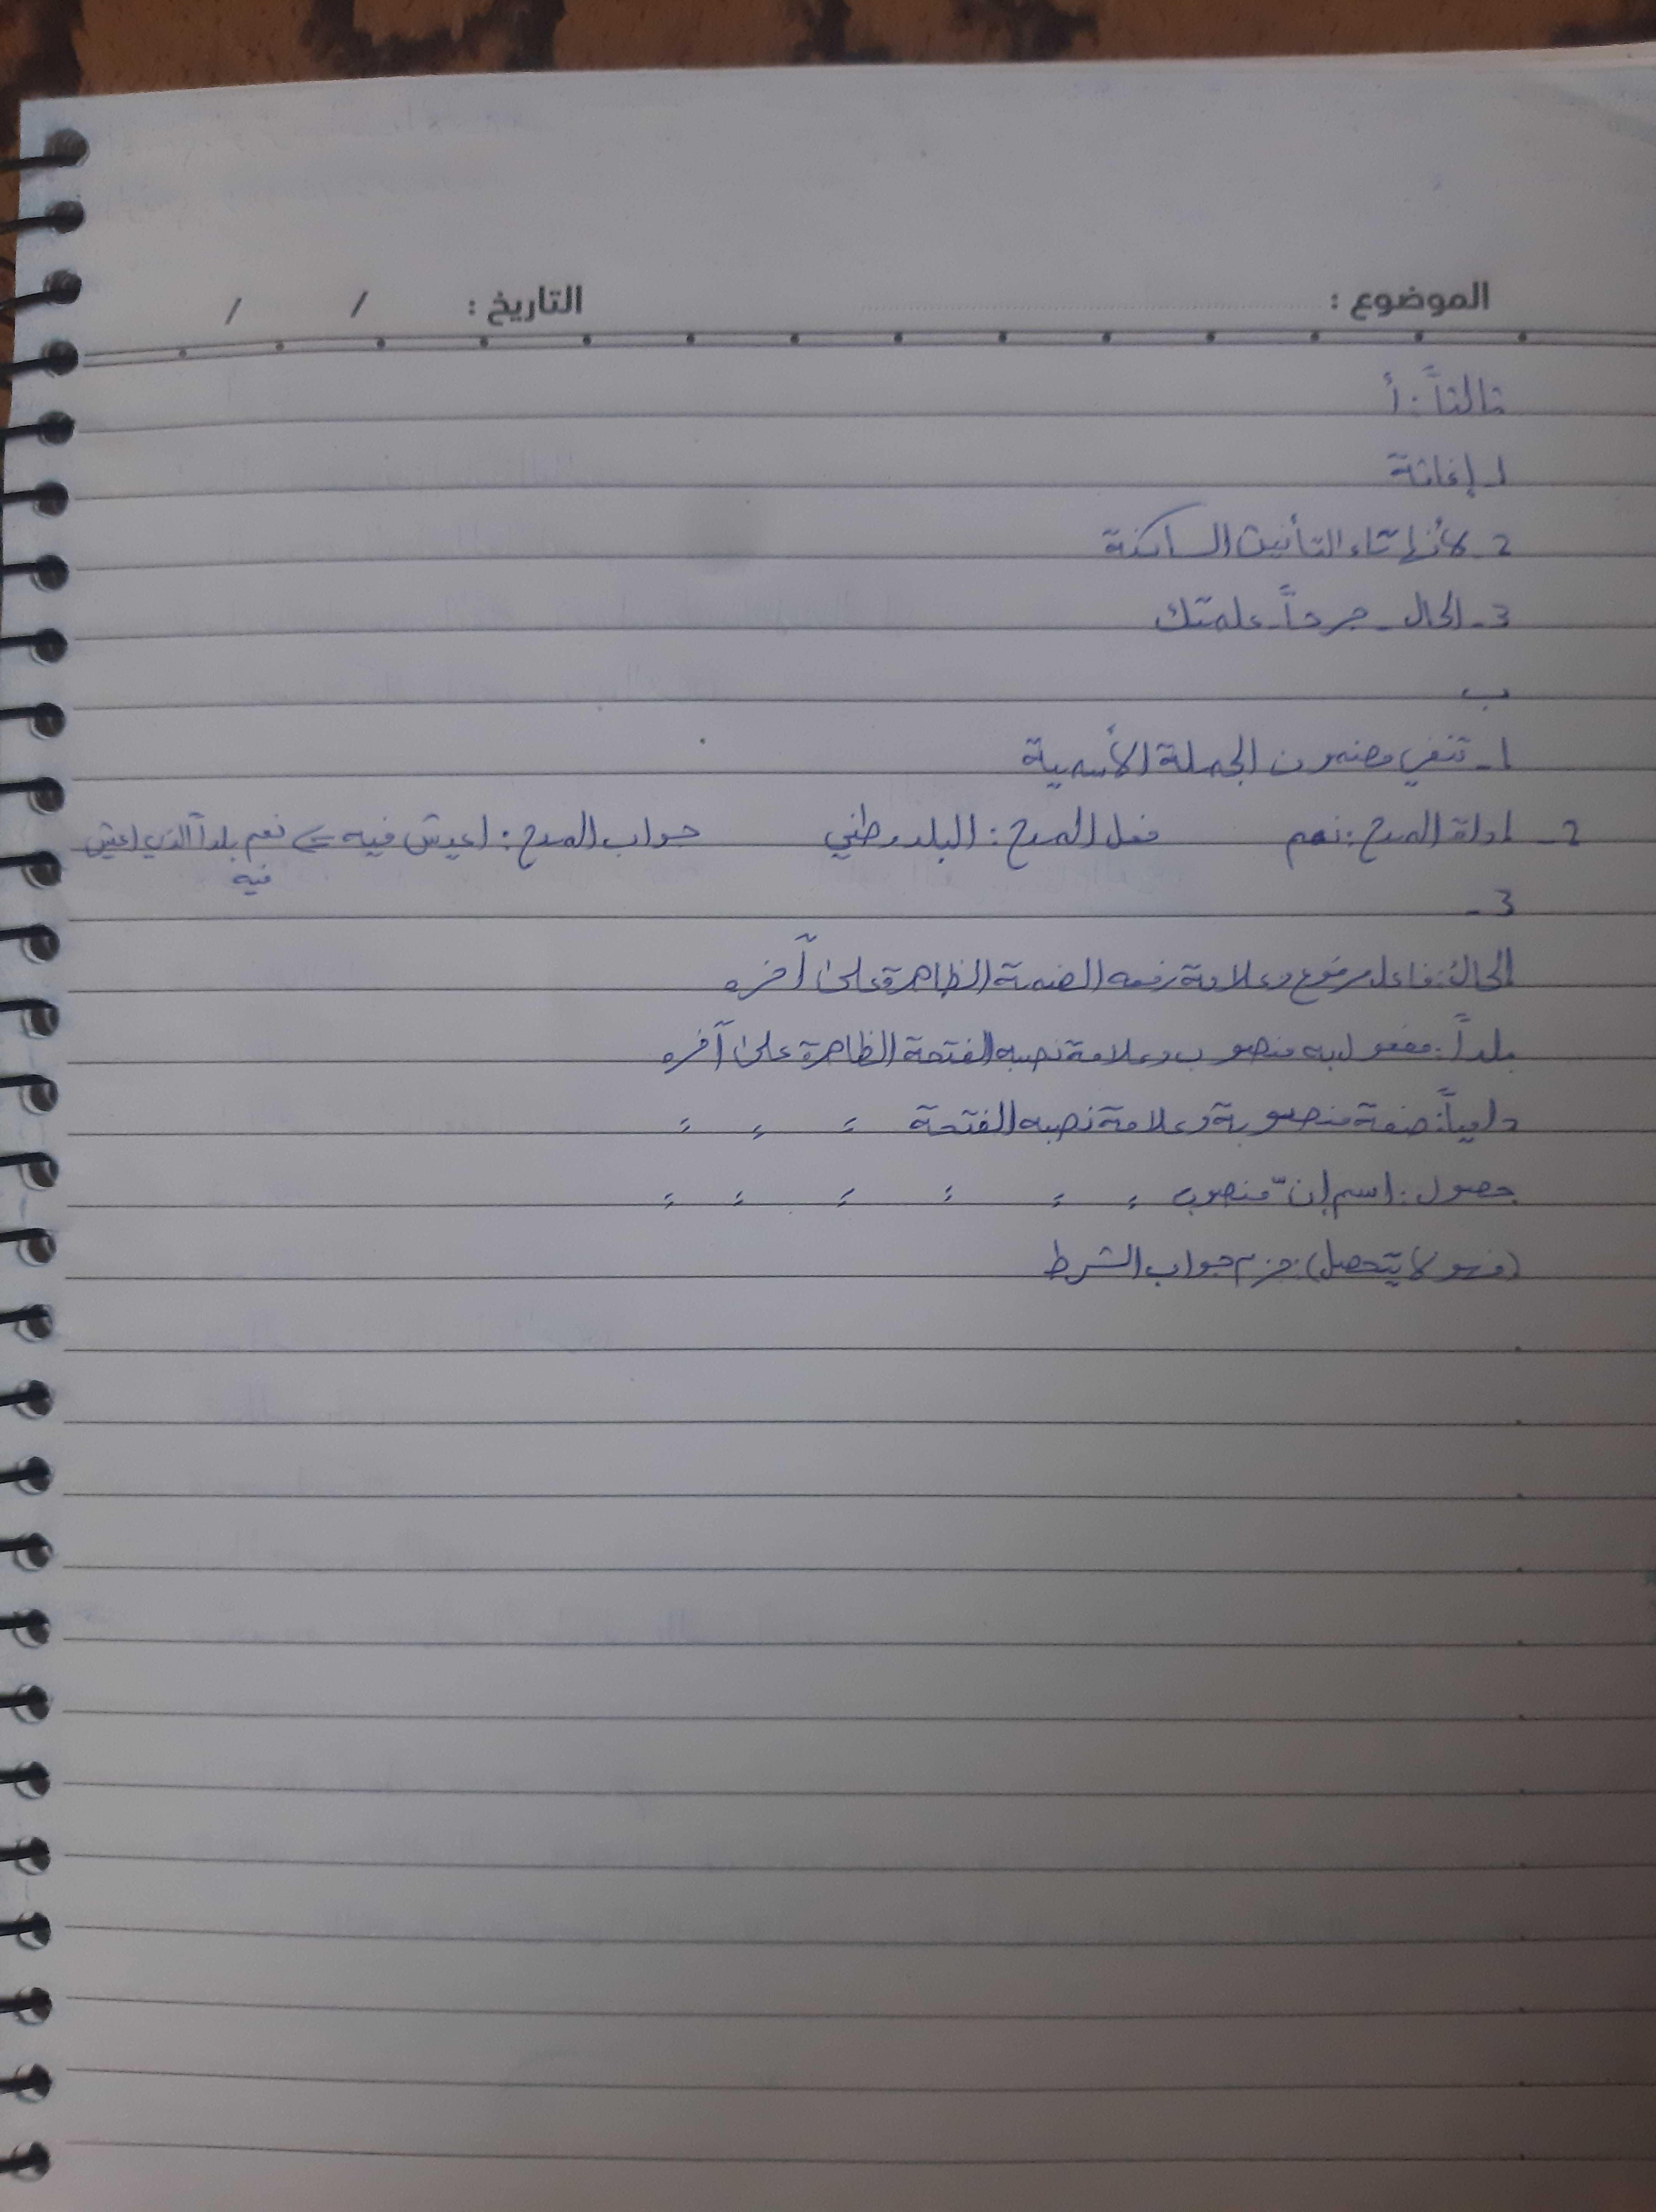 الموضوع : التاريخ : / /
ثالثاً : أ
1ـ إغاثة
2ـ لأنها تاء التأنيث الساكنة
3ـ الحال ـ جرحاً ـ علمتك
ب
1ـ تنفي مضمون الجملة الأسمية
2ـ اداة المدح : نعم فعل المدح : البلد وطني جواب المدح : اعيش فيه ⇐ نعم بلداً الذي اعيش
فيه
3ـ
الحالُ : فاعل مرفوع وعلامة رفعه الضمة الظاهرة على آخره
بلداً : مفعول به منصوب وعلامة نصبه الفتحة الظاهرة على آخره
دامياً : صفة منصوبة وعلامة نصبه الفتحة = = =
حصول : اسم إنّ منصوب = = = = = =
(فهو لا يتحصل) : جزم جواب الشرط